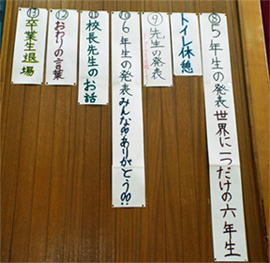 ⑧5年生の発表 世界に一つだけの六年生
トイレ休憩
⑨先生の発表
⑩6年生の発表 みんな∞ありがとう∞!!
⑪校長先生のお話
⑫おわりの言葉
⑬卒業生退場